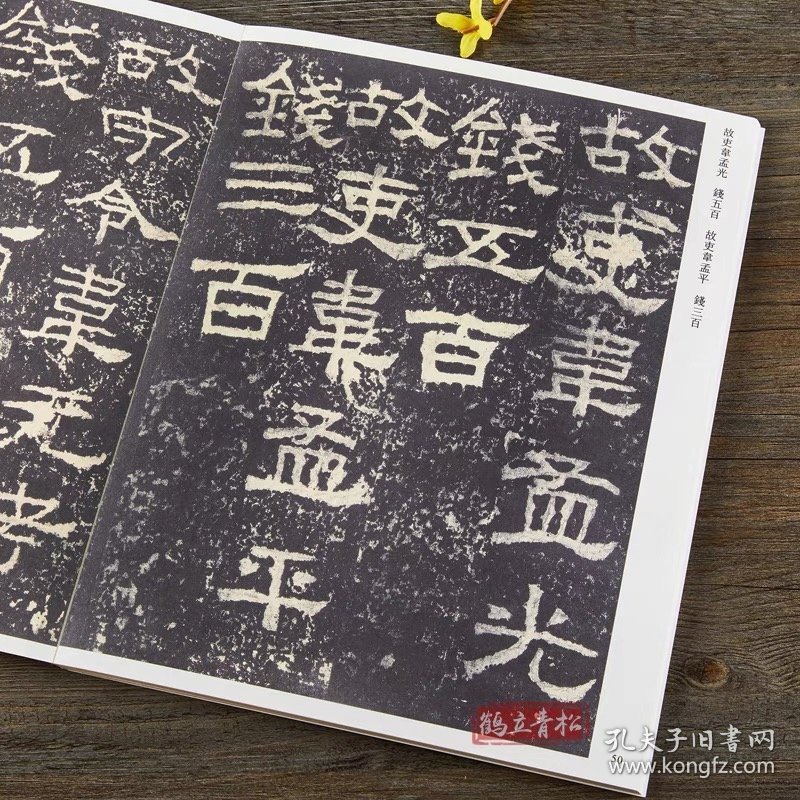 故吏韋孟光 錢五百 故吏韋孟平 錢三百
故吏韋孟光
錢五百
故吏韋孟平
錢三百
故守令韋元考
錢五百
鹤立青松
孔夫子旧書网
www.kongfz.com